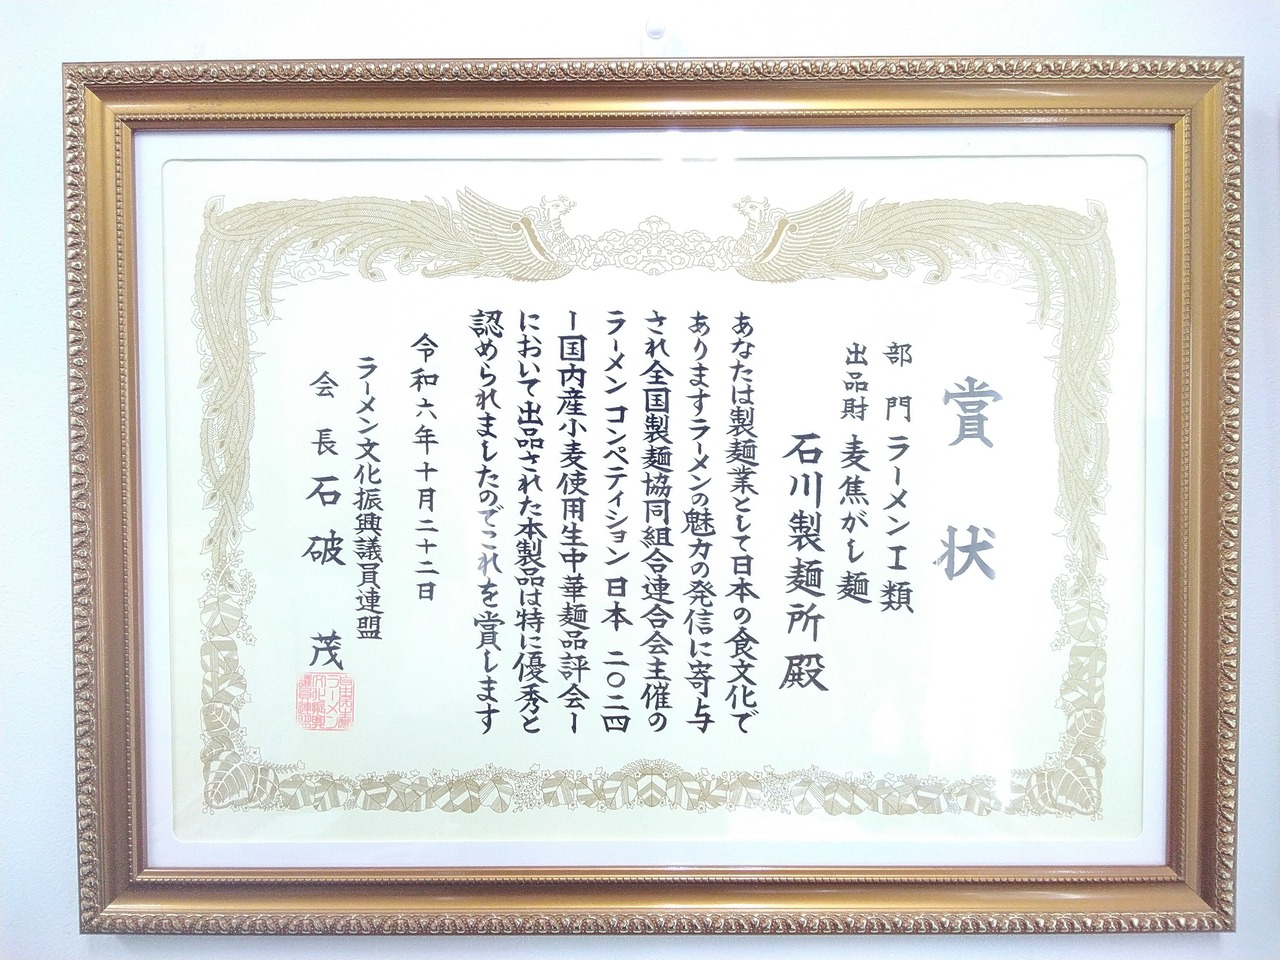 賞状
部門 ラーメンエ類
出品財 麦焦がし麺
石川製麺所殿
あなたは製麺業として日本の食文化で
ありますラーメンの魅力の発信に寄与
され全国製麺協同組合連合会主催の
ラーメンコンペティション日本二〇二四
ー国内産小麦使用生中華麺品評会ー
において出品された本製品は特に優秀と
認められましたのでこれを賞します
令和六年十月二十二日
ラーメン文化振興議員連盟
会長 石破 茂